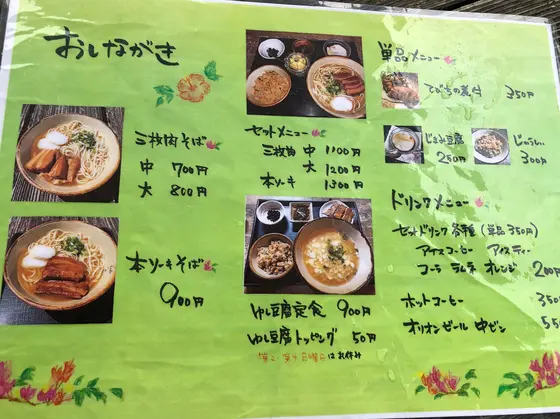 おしながき
三枚肉そば
中 700円
大 800円
本ソーキそば
900円
セットメニュー
三枚肉 中 1100円
大 1200円
本ソーキ 1300円
ゆし豆腐定食 900円
ゆし豆腐トッピング 50円
第2 第4日曜日はお休み
単品メニュー
てびちの煮付 350円
じーまみ豆腐
250円
じゅーしい
300円
ドリンクメニュー
セットドリンク各種 (単品350円)
アイスコーヒー アイスティー
コーラ ラムネ オレンジ 200円
ホットコーヒー
オリオンビール 中ビン